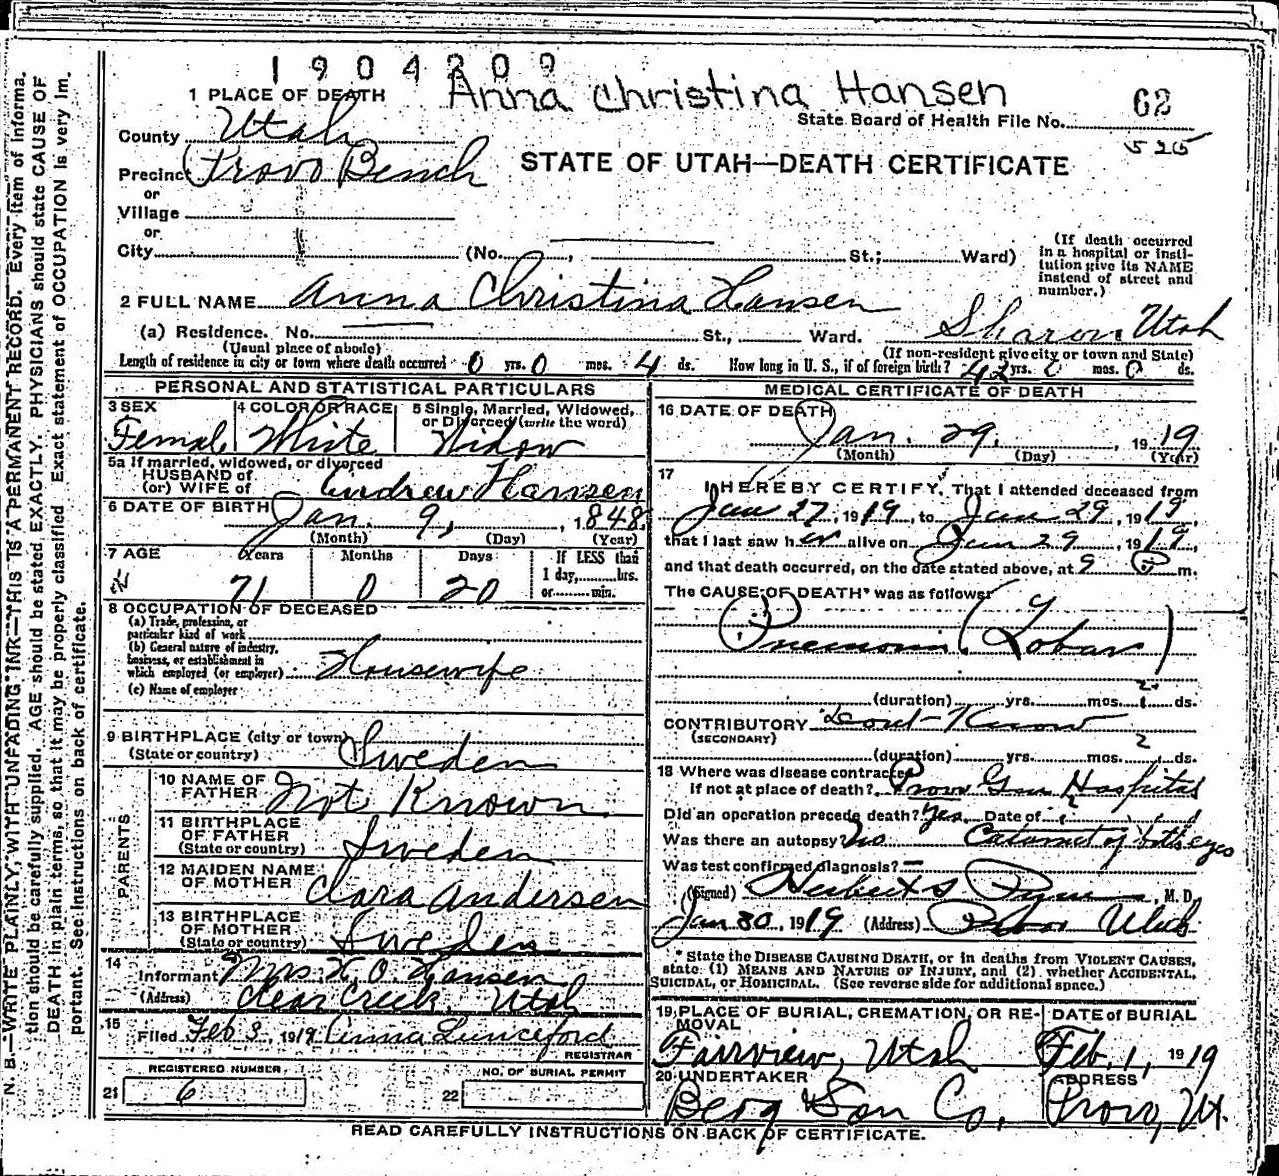 1904209
Anna Christina Hansen
1 PLACE OF DEATH
State Board of Health File No. 62
525
County Utah
STATE OF UTAH—DEATH CERTIFICATE
Precinct Provo Bench
or
Village
or
City (No. , St.; Ward)
(If death occurred
in a hospital or insti-
tution give its NAME
instead of street and
number.)
2 FULL NAME Anna Christina Hansen
(a) Residence. No. St., Ward. Sharon Utah
(Usual place of abode) (If non-resident give city or town and State)
Length of residence in city or town where death occurred 0 yrs. 0 mos. 4 ds. How long in U. S., if of foreign birth? 42 yrs. 0 mos. 0 ds.
PERSONAL AND STATISTICAL PARTICULARS
3 SEX 4 COLOR OR RACE 5 Single, Married, Widowed,
or Divorced (write the word)
Female White Widow
5a If married, widowed, or divorced
HUSBAND of
(or) WIFE of Andrew Hansen
6 DATE OF BIRTH Jan. 9, 1848
(Month) (Day) (Year)
7 AGE Years Months Days If LESS than
1 day, hrs.
or min.
71 0 20
8 OCCUPATION OF DECEASED
(a) Trade, profession, or
particular kind of work
(b) General nature of industry,
business, or establishment in
which employed (or employer) Housewife
(c) Name of employer
9 BIRTHPLACE (city or town)
(State or country) Sweden
PARENTS
10 NAME OF
FATHER Not Known
11 BIRTHPLACE
OF FATHER
(State or country) Sweden
12 MAIDEN NAME
OF MOTHER Clara Andersen
13 BIRTHPLACE
OF MOTHER
(State or country) Sweden
14
Informant Mrs H. O. Hansen
(Address) Clear Creek, Utah
15
Filed Feb 3, 1919 Emma Lunceford
REGISTRAR
REGISTERED NUMBER NO. OF BURIAL PERMIT
21 6 22
MEDICAL CERTIFICATE OF DEATH
16 DATE OF DEATH
Jan. 29, 1919
(Month) (Day) (Year)
17
I HEREBY CERTIFY, That I attended deceased from
Jan 27, 1919, to Jan 29, 1919,
that I last saw her alive on Jan 29, 1919,
and that death occurred, on the date stated above, at 9 P m.
The CAUSE OF DEATH* was as follows:
Pnemonia (Lobar)
(duration) yrs. mos. 2 ds.
CONTRIBUTORY Dont Know
(SECONDARY)
(duration) yrs. mos. 2 ds.
18 Where was disease contracted
If not at place of death? Provo Gen Hospital
Did an operation precede death? Yes Date of
Was there an autopsy? No Cataract of both eyes
Was test confirmed diagnosis? —
(Signed) Herbert S Pyne, M. D.
Jan 30, 1919 (Address) Provo Utah
* State the DISEASE CAUSING DEATH, or in deaths from VIOLENT CAUSES,
state (1) MEANS AND NATURE OF INJURY, and (2) whether ACCIDENTAL,
SUICIDAL, or HOMICIDAL. (See reverse side for additional space.)
19 PLACE OF BURIAL, CREMATION, OR RE- DATE of BURIAL
MOVAL
Fairview, Utah Feb. 1, 1919
20 UNDERTAKER ADDRESS
Berg & Son Co, Provo, Ut.
READ CAREFULLY INSTRUCTIONS ON BACK OF CERTIFICATE.
N. B.—WRITE PLAINLY, WITH UNFADING INK—THIS IS A PERMANENT RECORD. Every item of informa-
tion should be carefully supplied. AGE should be stated EXACTLY. PHYSICIANS should state CAUSE OF
DEATH in plain terms, so that it may be properly classified. Exact statement of OCCUPATION is very im-
portant. See instructions on back of certificate.